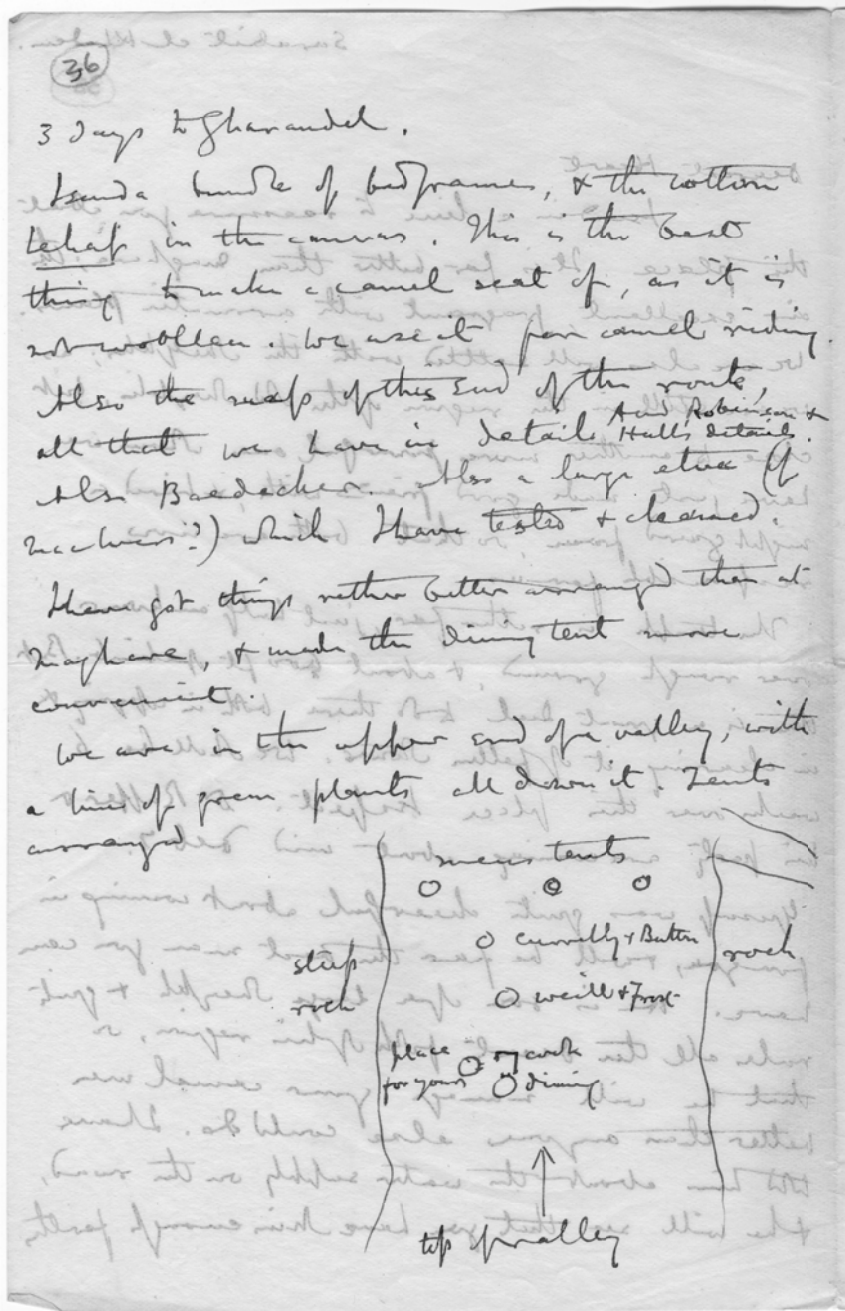 36
3 days to Gharandel.
I send a bundle of bedframes, & the cotton
lehaf in the canvas. This is the best
thing to make a camel seat of, as it is
not woollen. We use it for camel riding.
Also the map of this end of the route,
all that we have in detail. And Robinson &
Hull's details.
Also Baedecker. Also a large etna (if
) which I have tested & cleaned.
I have got things rather better arranged than at
Maghara, & made the dining tent more
convenient.
We are in the upper end of a valley, with
a line of green plants all down it. Tents
arranged
mens tents
Currelly & Button
steep
rock
rock
Weill & Frost
place
for yours
cook
dining
top of valley